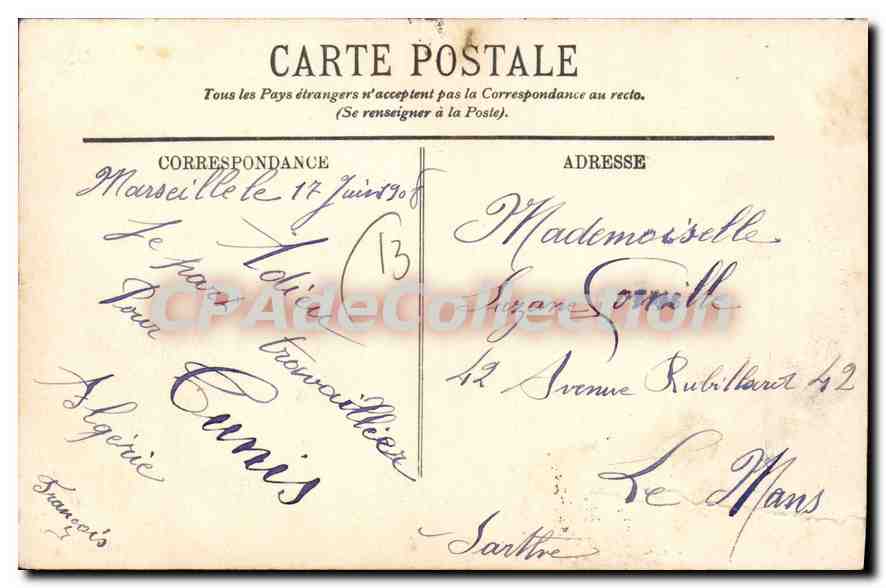 CARTE POSTALE
Tous les Pays étrangers n'acceptent pas la Correspondance au recto.
(Se renseigner à la Poste).
CORRESPONDANCE
Marseille le 17 Juin 1908
Je pars travailler
Pour Tunis
Algérie
Adieu
François
13
ADRESSE
Mademoiselle
Suzanne Cornille
42 Avenue Rubillard 42
Le Mans
Sarthe
CPAdeCollection